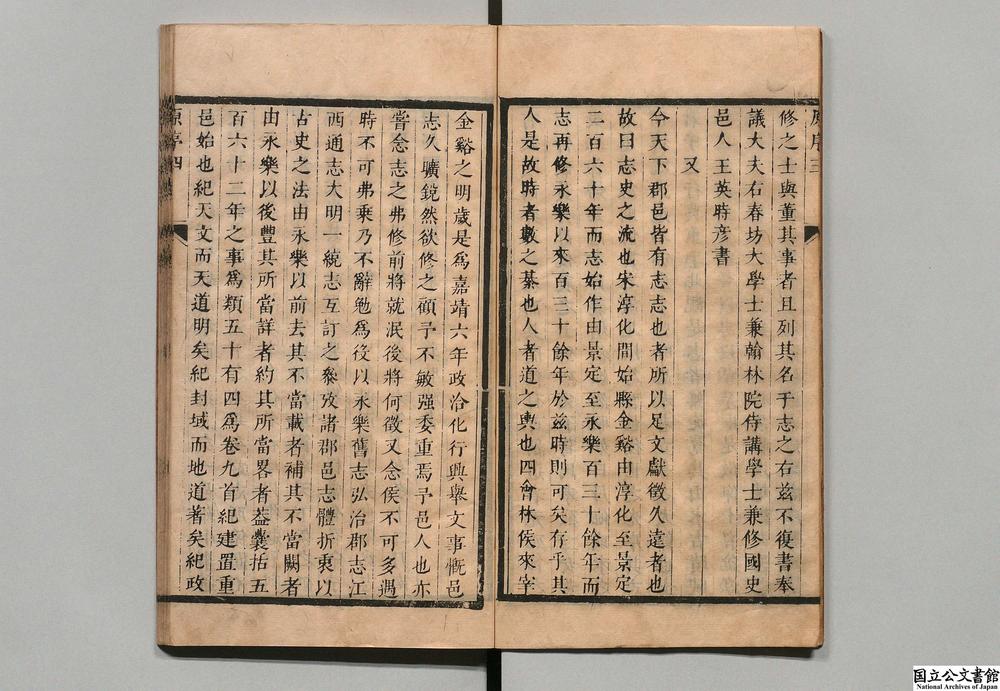 原序三
修之士與董其事者且列其名于志之右茲不復書奉
議大夫右春坊大學士兼翰林院侍講學士兼修國史
邑人王英時彥書
又
今天下郡邑皆有志志也者所以足文獻徵久遠者也
故曰志史之流也宋淳化間始縣金谿由淳化至景定
二百六十年而志始作由景定至永樂百三十餘年而
志再修永樂以來百三十餘年於茲時則可矣存乎其
人是故時者數之綦也人者道之輿也四會林侯來宰
金谿之明歲是爲嘉靖六年政洽化行興舉文事慨邑
志久曠鏡然欲修之顧予不敏强委重焉予邑人也亦
嘗念志之弗修前將就泯後將何徵又念侯不可多遇
時不可弗乘乃不辭勉爲役以永樂舊志弘治郡志江
西通志大明一統志互訂之叅攷諸郡邑志體折衷以
古史之法由永樂以前去其不當載者補其不當闕者
由永樂以後豐其所當詳者約其所當畧者葢囊括五
百六十二年之事爲類五十有四爲卷九首紀建置重
邑始也紀天文而天道明矣紀封域而地道著矣紀政
原序四
国立公文書館
National Archives of Japan